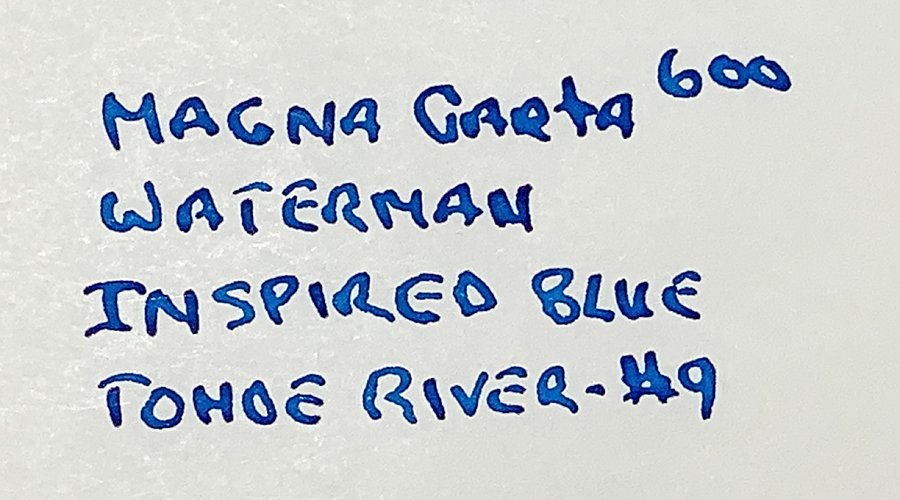 MAGNA CARTA 600
WATERMAN
INSPIRED BLUE
TOMOE RIVER-#9